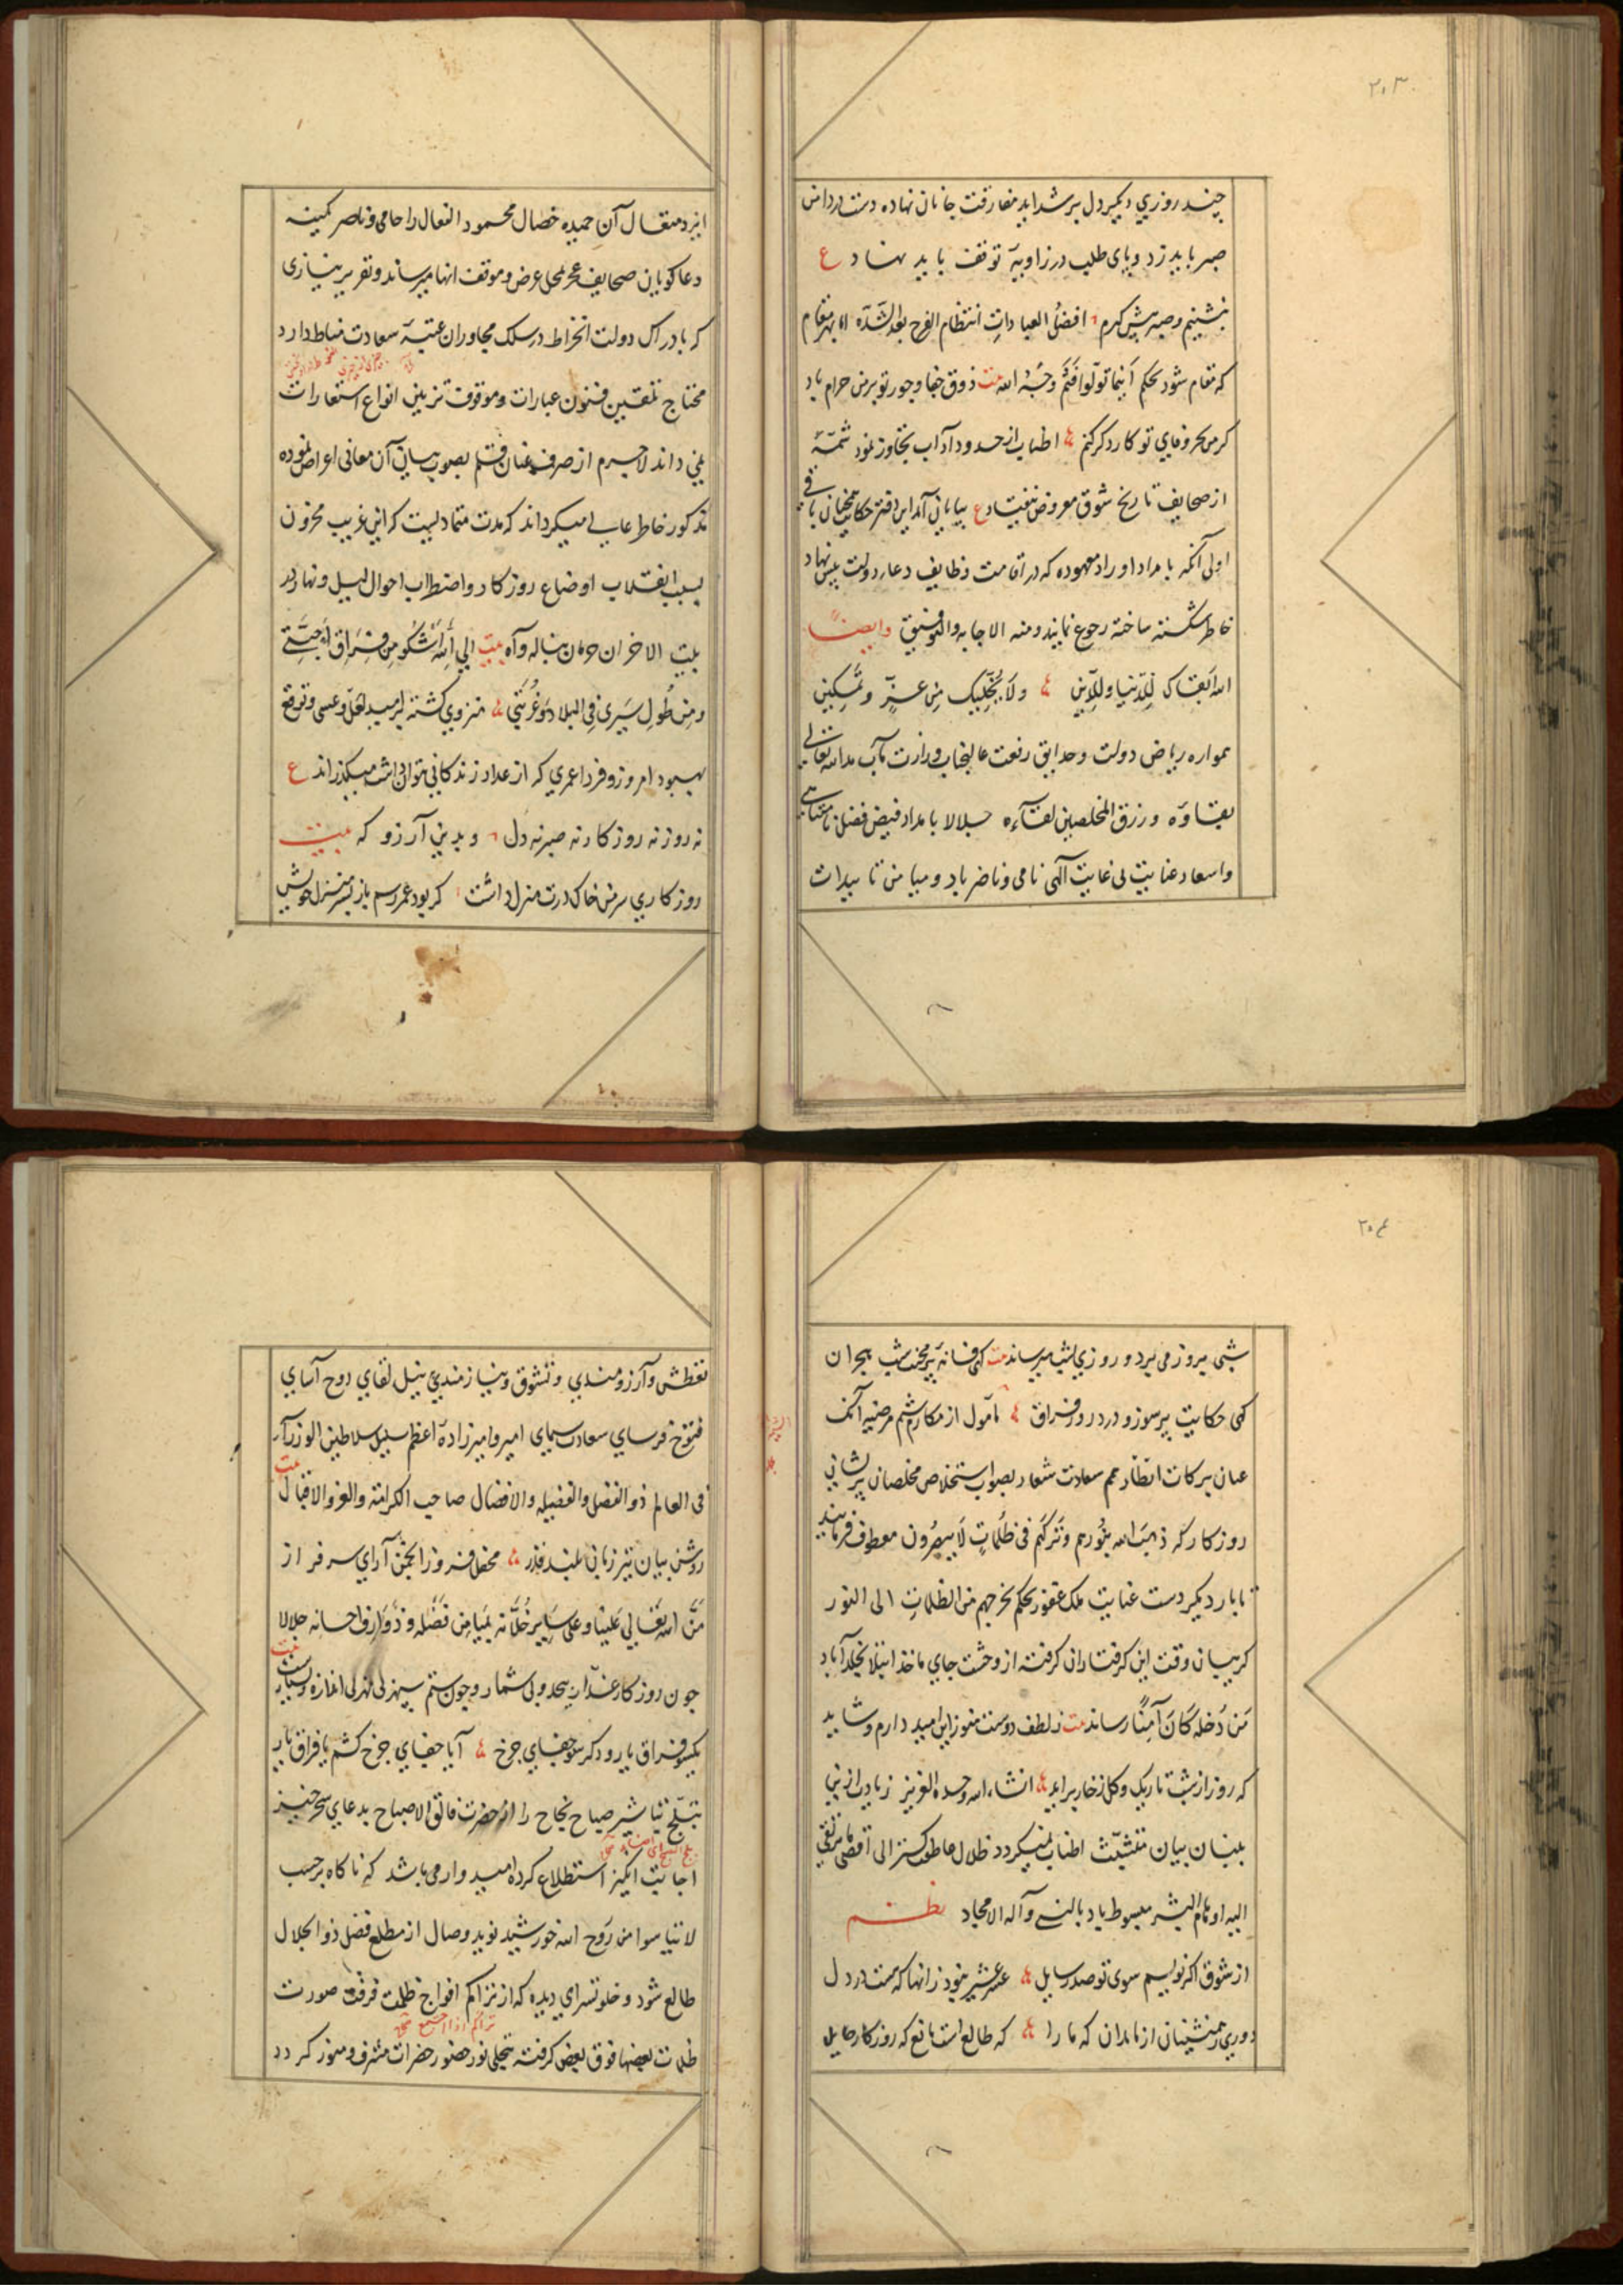 ۲۰۳
چند روزی دیگر دل بر شداید مفارقت جانان نهاده دست در دامن
صبر باید زد و پای طلب در زاویهٔ توقف باید نهاد ع
بنشینم و صبر پیش گیرم افضلُ العباداتِ انتظام الفرح بعد الشدّه
که مقام شود بحکم اَینما تولّوا فثَمَّ وَجهُ الله بیت ذوق جفا و جور تو بر من حرام باد
گر من بجز وفای تو کار دگر کنم اطناب از حدود آداب تجاوز نمود شمّهٔ
از صحایف تاریخ شوق معروض نیفتاد ع بپایان آمد این دفتر حکایت همچنان باقی
اولی آنکه بامداد اوراد معهوده که در اقامت وظایف دعا دولت پیش نهاد
خاطر شکسته ساخته رجوع نمایند و منه الاجابه والتوفیق وایضاً
الله اَبقاک لِلدّنیا و للدّین ولا یُخلّیک مِن عزٍّ و تمکینِ
همواره ریاض دولت و حدایق رفعت عالیجناب وزارت مآب مد الله تعالی
بقاؤه و رزق المخلصین لقآءه جلالا بامداد فیض فضل نامتناهی
و اسعاد عنایت بی غایت الٓهی نامی و ناضر باد و میامن تاییدات
ایزد متعال آن حمیده خصال محمود الفعال را حامی و ناصر کمینه
دعاگویان صحایف عجز بمحل عرض و موقف انها میرساند و تقریر نیازی
که بادراک دولت انخراط در سلک مجاوران عتبهٔ سعادت مناط دارد
محتاج تلقین فنون عبارات و موقوف تزیین انواع استعارات
نمی داند لاجرم از صرف عنان قلم بصوب بیان آن معانی اعراض نموده
مذکور خاطر عالی میگرداند که مدت متمادیست که این غریب محزون
بسبب انقلاب اوضاع روزگار و اضطراب احوال لیل و نهار در
بیت الاحزان حرمان بناله و آه بیت الی الله اَشکو مِن فِرَاقِ اَحِبَّتی
و مِن طُولِ سَیری فی البلاد وَ غُربَتی منزوی گشته بامید لعلّ و عسی و توقع
بهبود امروز و فردا عمری که از عداد زندگانی نتوان داشت میگذراند ع
نه روز نه روزگار نه صبر نه دل و بدین آرزو که بیت
روزگاری سر من خاک درت منزل داشت گر بود عمر رسم باز بسر منزل خویش
۲۰۴
شبی بروز می برد و روزی بشب میرساند بیت گهی فسانهٔ پر محنت شب هجران
گهی حکایت پر سوز و درد روز فراق مأمول از مکارم شیم مرضیه آنک
عنان برکات انظار همم سعادت شعار بصوب استخلاص مخلصان پریشانی
روزگار که ذهبَ الله بنُورهم وتَرکَهُم فی ظُلُماتٍ لاَ یبصُرون معطوف فرمایند
تا بار دیگر دست عنایت ملک غفور بحکم یخرجهم من الظلماتِ الی النور
گریبان وقت این گرفتاران گرفته از وحشت جای ماخذ ابتلا بخلدآباد
مَن دَخله کانَ آمِنًا رساند بیت ز لطف دوست هنوز این امید دارم و شاید
که روز از شب تاریک و گل ز خار برآید انشاء الله وحده العزیز زیادت ازین
بلسان بیان متشبّث اطناب نمیگردد ظلال عاطفت گستر الی اقصی ما یرتقی
الیه اوهام البشر مبسوط باد بالنبی وآله الامجاد نظم
از شوق اگر نویسم سوی تو صد رسایل عشر عشیر نبود زانها که هست در دل
دوری ز همنشینان از ما بدان که ما را که طالع است مانع که روزگار حایل
تعطش و آرزومندی و تشوق و نیازمندی بنیل لقای روح آسای
فتوح فرسای سعادت سیمای امیر و امیرزادهٔ اعظم سلیل سلاطین الوزرآء
فی العالم ذو الفضل والفضیله والافضال صاحب الکرامة والعز والاقبال بیت
روشن بیان تیز زبان بلند قدر محفل فروز انجمن آرای سرفراز
مَنَّ الله تعَالی عَلینا و علی سَایر خُلّانه بمَیَامِن فَضله و ذوَارِف احسانه جلالا
چون روزگار غدّار بیحد و بی شمار و چون ستم سپهر بی مهر بی اندازه و بسیارست بیت
یکسو فراق یار و دگر سو جفای چرخ آیا جفای چرخ کشم یا فراق یار
تبلّج تباشیر صباح نجاح را از حضرت فالق الاصباح بدعای سحرخیز
اجابت انگیز استطلاع کرده امیدوار می باشد که ناگاه برحسب
لا تیاسوا من رَوح الله خورشید نوید وصال از مطلع فضل ذو الجلال
طالع شود و خلوتسرای دیده که از تراکم افواج ظلمت فرقت صورت
ظلمات بعضها فوق بعض گرفته بتجلی نور حضور حضرات مشرف و منور گردد